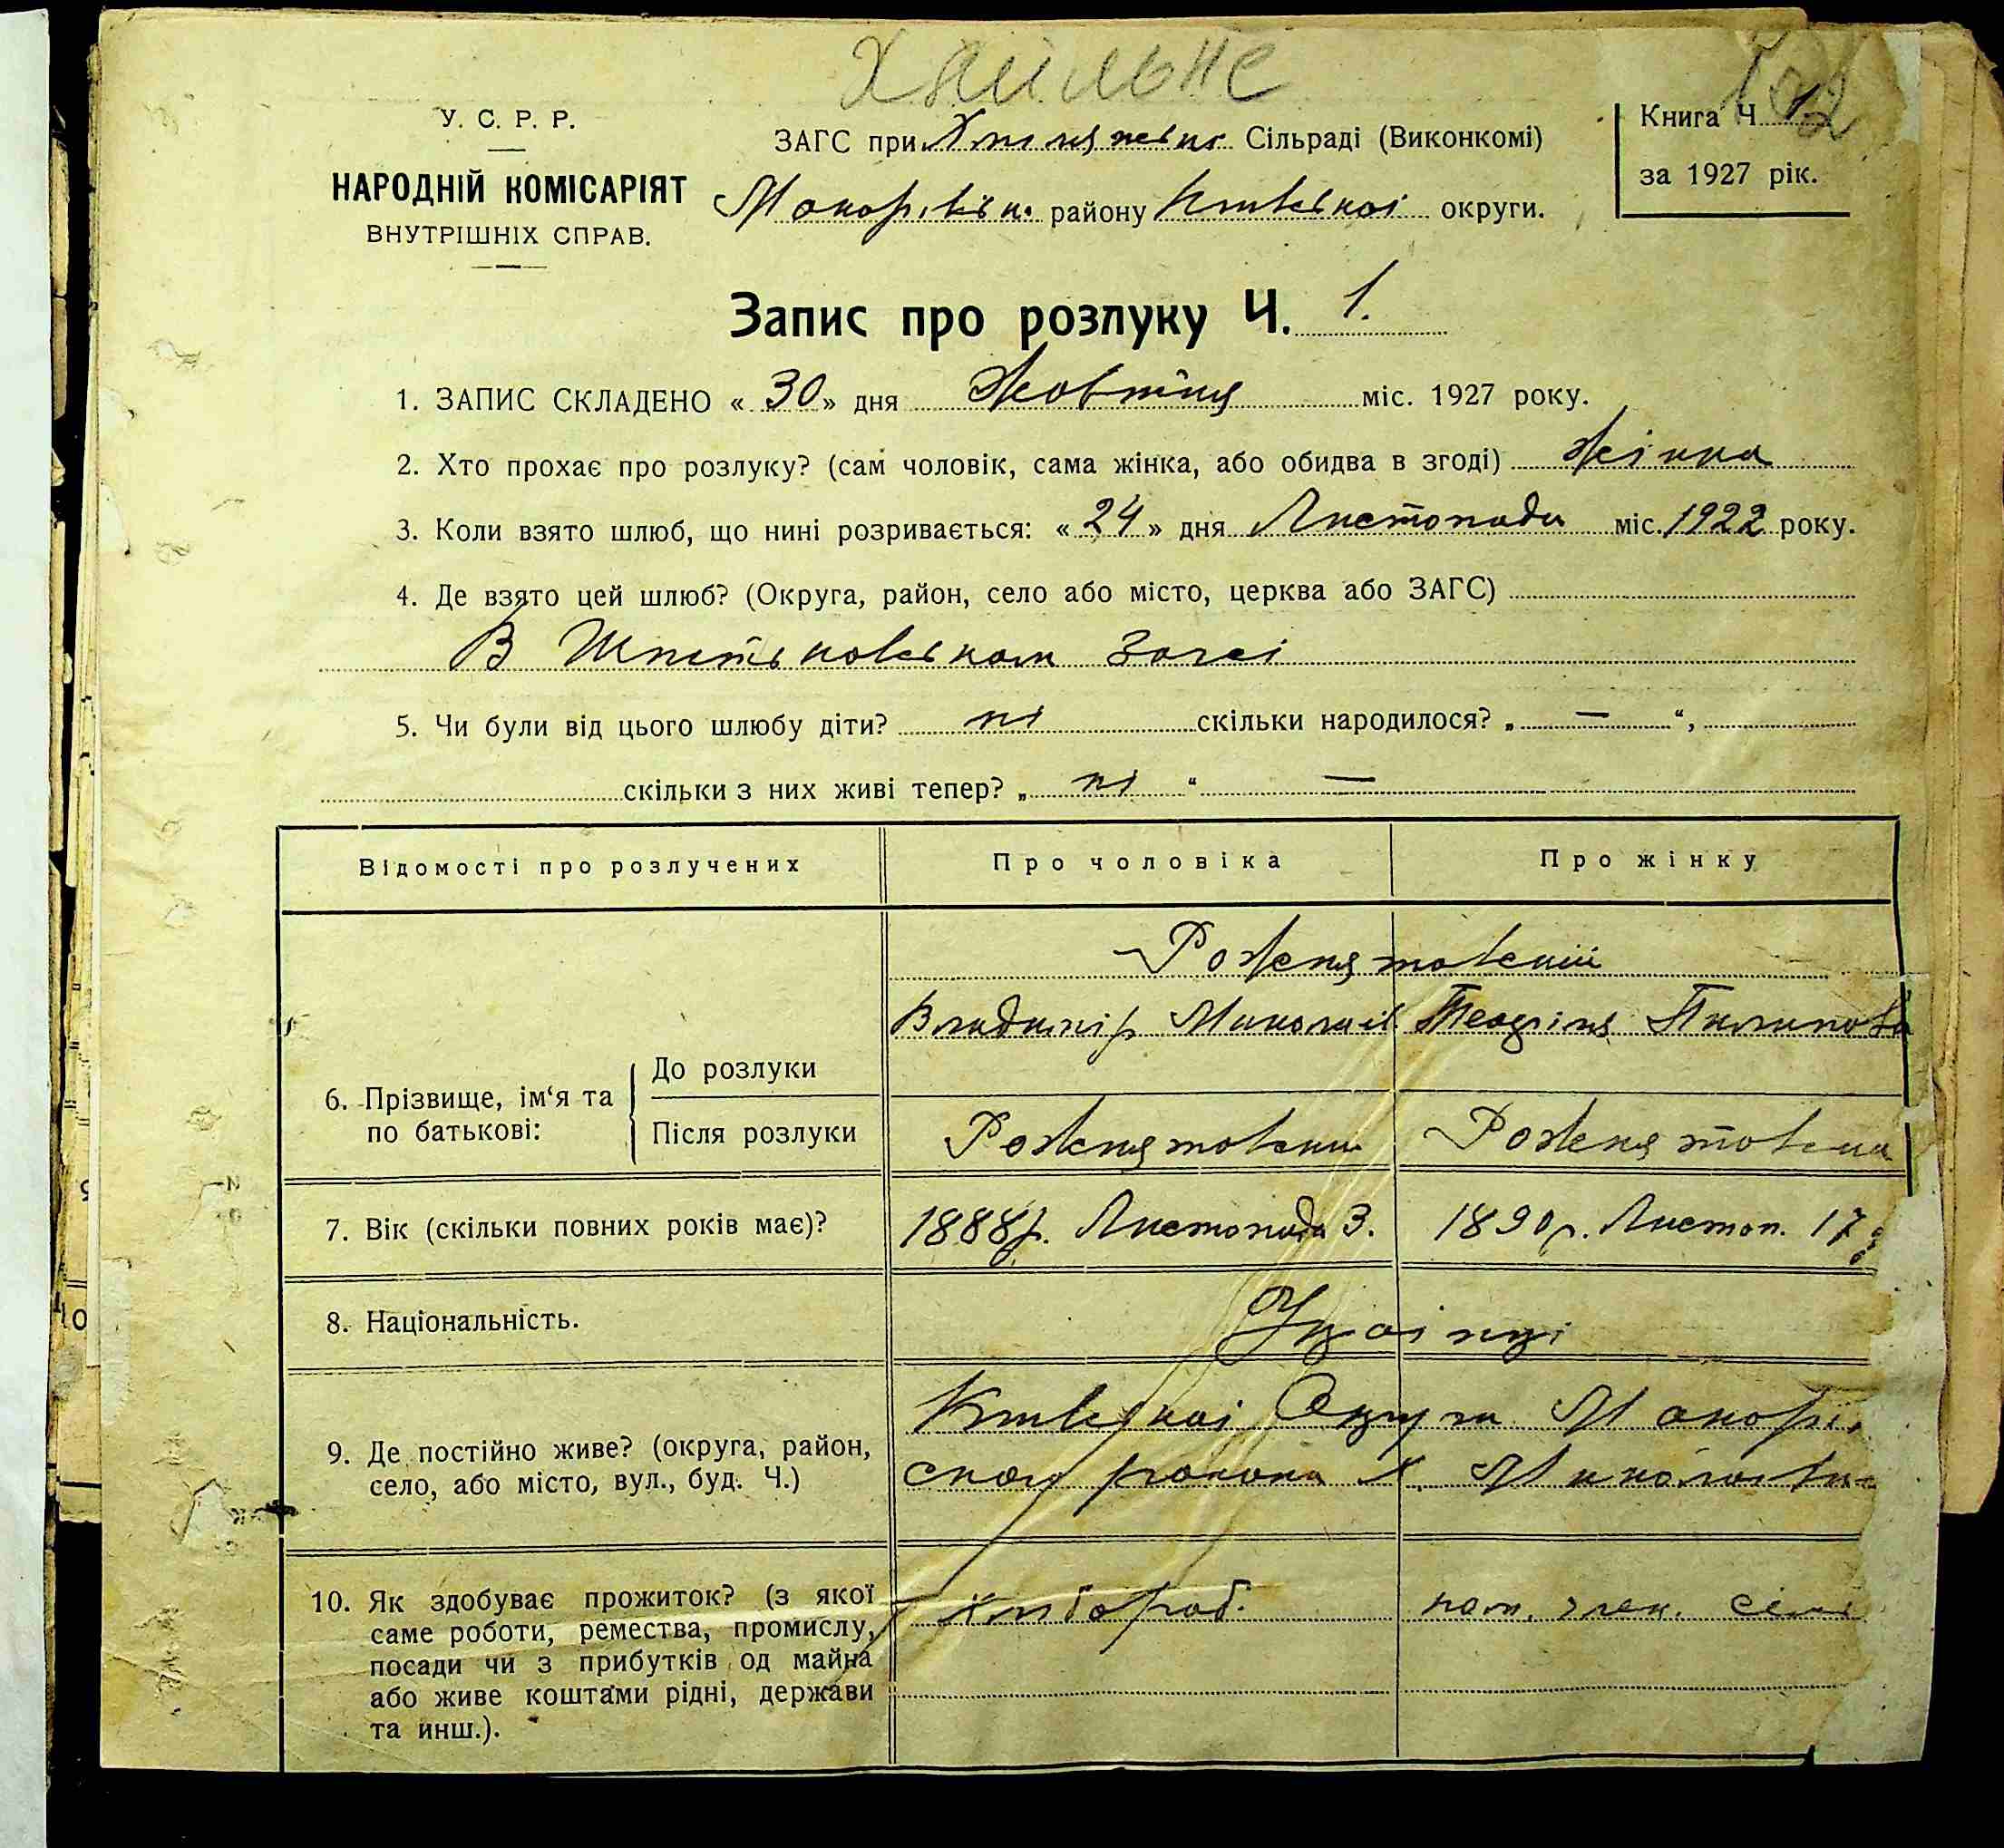 У. С. Р. Р.
НАРОДНІЙ КОМІСАРІЯТ
ВНУТРІШНІХ СПРАВ.
ЗАГС при Сільраді (Виконкомі)
Макарівськ. району Київської округи.
Книга Ч. 1.
за 1927 рік.
Запис про розлуку Ч. 1.
1. ЗАПИС СКЛАДЕНО « 30 » дня Жовтня міс. 1927 року.
2. Хто прохає про розлуку? (сам чоловік, сама жінка, або обидва в згоді) Жінка
3. Коли взято шлюб, що нині розривається: « 24 » дня Листопада міс. 1922 року.
4. Де взято цей шлюб? (Округа, район, село або місто, церква або ЗАГС)
В Загсі
5. Чи були від цього шлюбу діти? ні скільки народилося? „ — “,
скільки з них живі тепер? „ ні “ —
Відомості про розлучених Про чоловіка Про жінку
Роженятовскиі
Владимір Миколаів.
6. Прізвище, ім‘я та по батькові:
До розлуки
Після розлуки Роженятовский Роженятовска
7. Вік (скільки повних років має)? 1888р. Листопада 3. 1890р. Листоп. 17
8. Національність.
Київської Округи Макарів
9. Де постійно живе? (округа, район,
село, або місто, вул., буд. Ч.)
ского району х.
10. Як здобуває прожиток? (з якої хлібороб. сем
саме роботи, ремества, промислу,
посади чи з прибутків од майна
або живе коштами рідні, держави
та инш.).